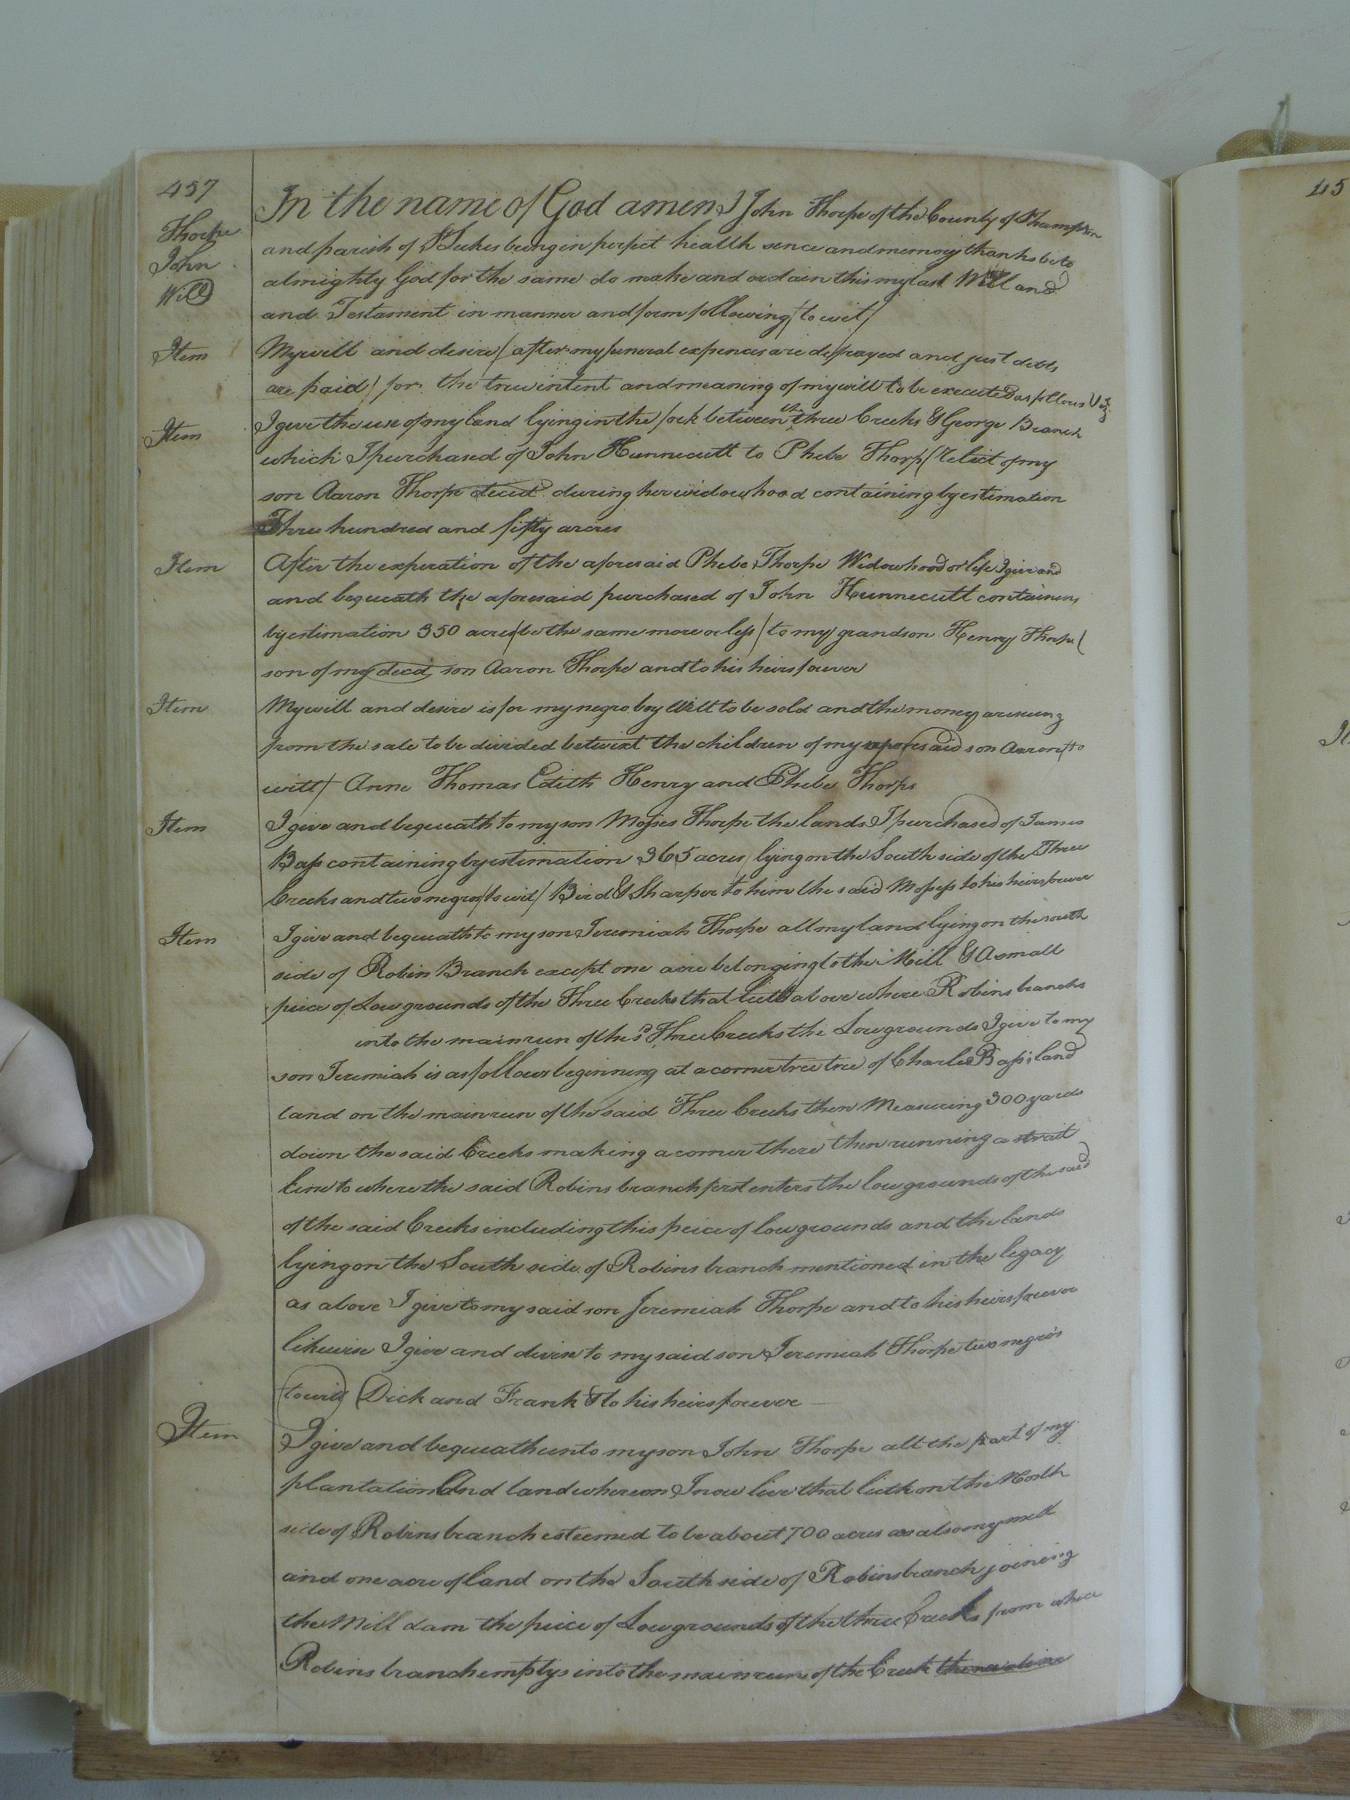 457
Thorpe
John
Will
In the name of God amen I John Thorpe of the County of Southampton
and parish of St Lukes being in perfect health sence and memory thanks be to
almighty God for the same do make and ordain this my last Will and
and Testament in manner and form following (to wit)
Item
My will and desire (after my funeral expences are defrayed and just debts
are paid) for the true intent and meaning of my will to be executed as follows Viz
Item
I give the use of my land lying in the fork between the three Creeks & George Branch
which I purchased of John Hunnecutt to Phebe Thorp (relict of my
son Aaron Thorpe decd during her widowhood containing by estimation
Three hundred and fifty acres
Item
After the experation of the aforesaid Phebe Thorpe Widowhood or life I give and
and bequeath the aforesaid purchased of John Hunnecutt containing
by estimation 350 acres (be the same more or less) to my grandson Henry Thorpe (
son of my decd son Aaron Thorpe and to his heirs forever
Item
My will and desire is for my negro boy Will to be sold and the money ariseing
from the sale to be divided betwixt the children of my aforesaid son Aaron (to
witt) Anne Thomas Edith Henry and Phebe Thorps
Item
I give and bequeath to my son Moses Thorpe the lands I purchased of James
Bass containing by estimation 365 acres lying on the South side of the Three
Creeks and two negros (to wit) Bird & Sharper to him the said Moses to his heirs forever
Item
I give and bequeath to my son Jeremiah Thorpe all my land lying on the south
side of Robin Branch except one acre belonging to the Mill & A small
peice of Low grounds of the Three Creeks that lieth above where Robins branche
into the main run of the sd Three Creeks the Low grounds I give to my
son Jeremiah is as follows beginning at a corner tree tree of Charles Bass's land
land on the main run of the said Three Creeks then Measuring 300 yards
down the said Creeks making a corner there then running a strait
line to where the said Robins branch first enters the low grounds of the said
of the said Creeks including this peice of low grounds and the lands
lying on the South side of Robins branch mentioned in the legacy
as above I give to my said son Jeremiah Thorpe and to his heirs forever
likewise I give and divise to my said son Jeremiah Thorpe two negros
(to wit) Dick and Frank & to his heirs forever
Item
I give and bequeath unto my son John Thorpe all the part of my
plantation And land whereon I now live that lieth on the North
side of Robins branch esteemed to be about 700 acres as also my mill
and one acre of land on the South side of Robins branch joineing
the Mill dam the peice of Low grounds of the three Creeks from where
Robins branch emptys into the main run of the Creek
45